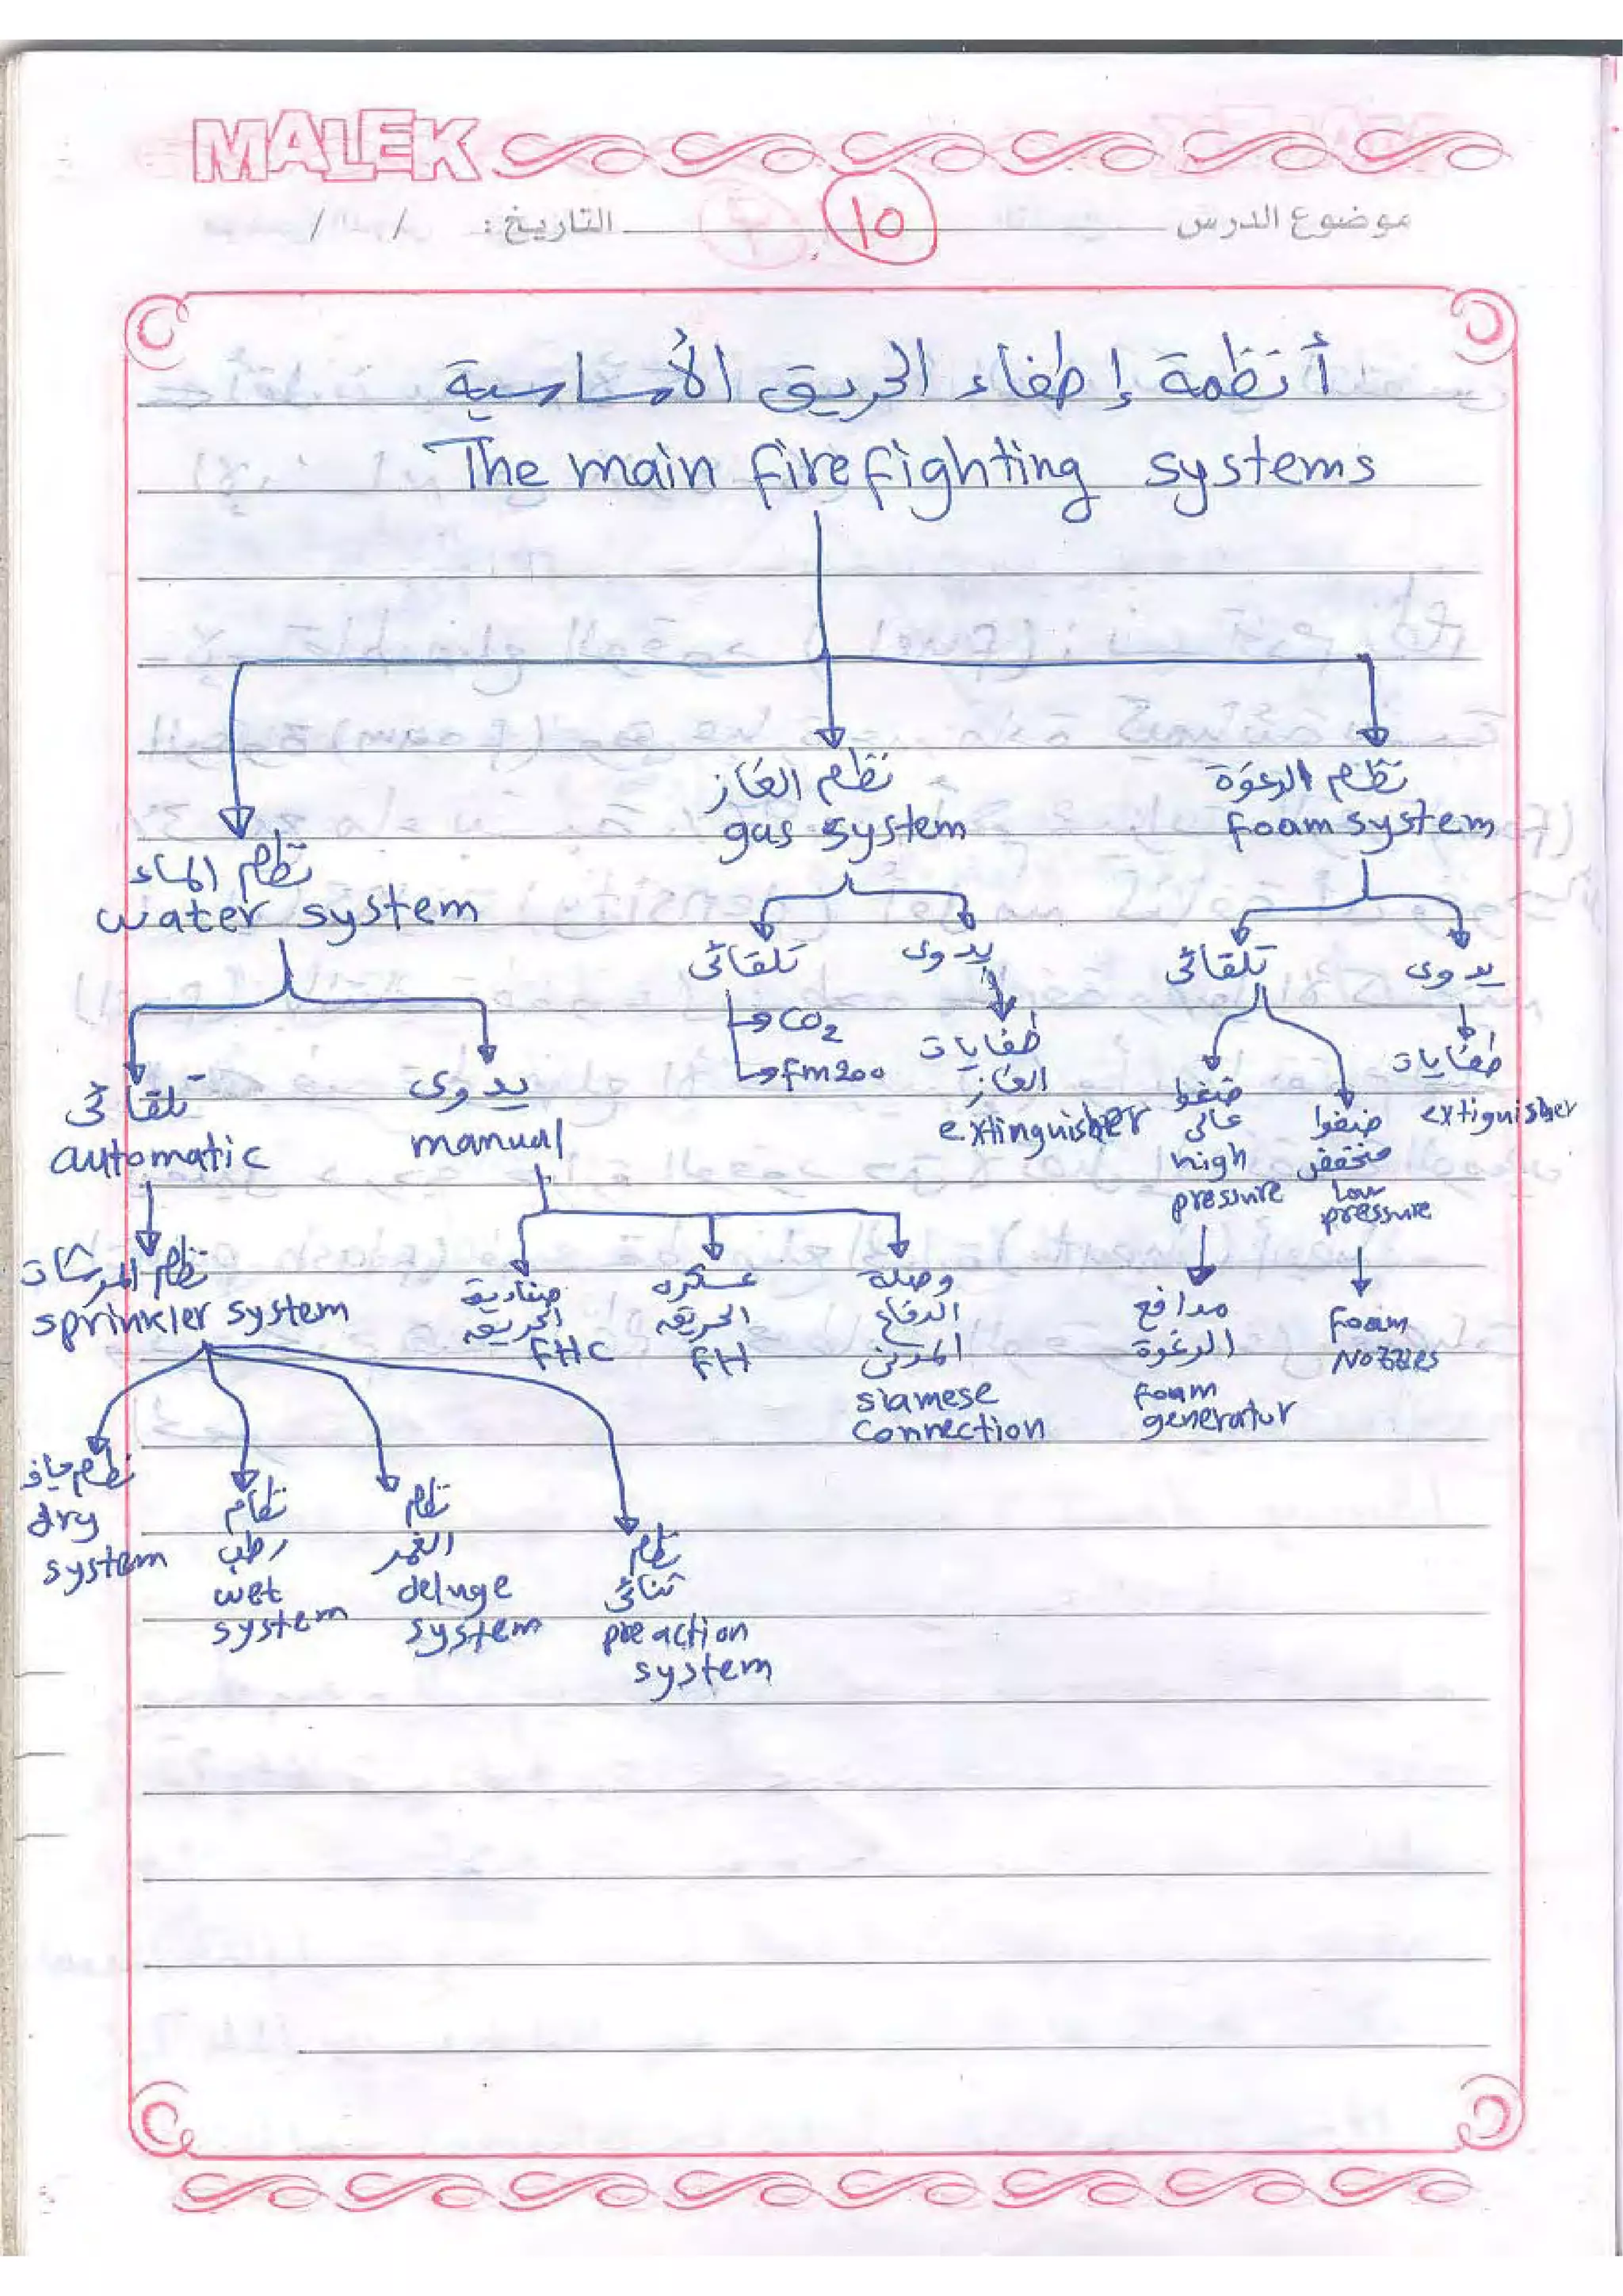 MALEK
موضوع الدرس
10
التاريخ: / /
أنظمة إطفاء الحريق الأساسية
The main firefighting systems
نظام الماء
water system
نظام الغاز
gas system
نظام الرغوة
foam system
تلقائى
automatic
يدوى
manual
تلقائى
يدوى
تلقائى
يدوى
CO2
fm200
طفايات
الغاز
extinguisher
ضغط
عالى
high
pressure
ضغط
منخفض
low
pressure
طفايات
extiguisher
نظام المرشات
sprinkler system
صناديق
الحريق
FHC
عسكره
الحريق
FH
وصلة
الدفاع
المدنى
siamese
connection
مدافع
الرغوة
foam
generator
foam
Nozzles
نظام جاف
dry
system
نظام
رطب
wet
system
نظام
الغمر
deluge
system
نظام
ثنائى
preaction
system